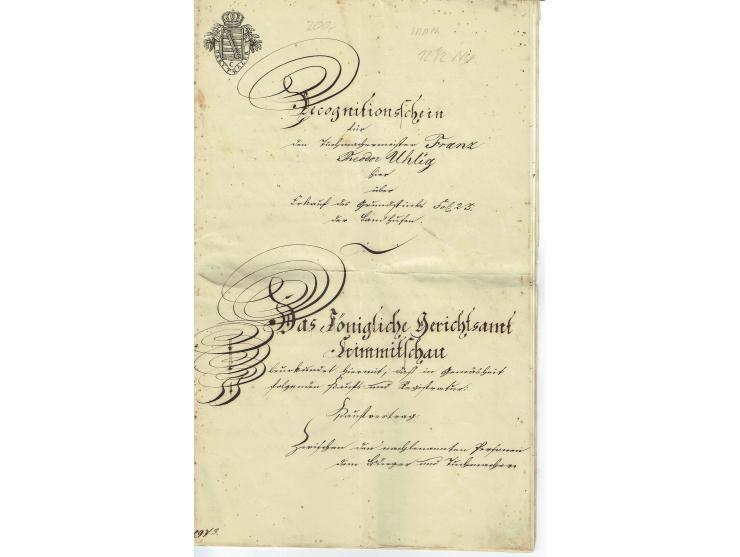 200,-
Recognitionsschein
für
den Tuchmachermeister Franz
Theodor Uhlig
hier
über
Erkauf des Grundstücks Fol. 25.
der Landhufen.
Das Königliche Gerichtsamt
Crimmitschau
beurkundet hiermit, daß in Gemäsheit
folgenden Kaufs und Registratur:
Kaufvertrag.
Zwischen den nachbenannten Personen
dem Bürger und Tuchmacher